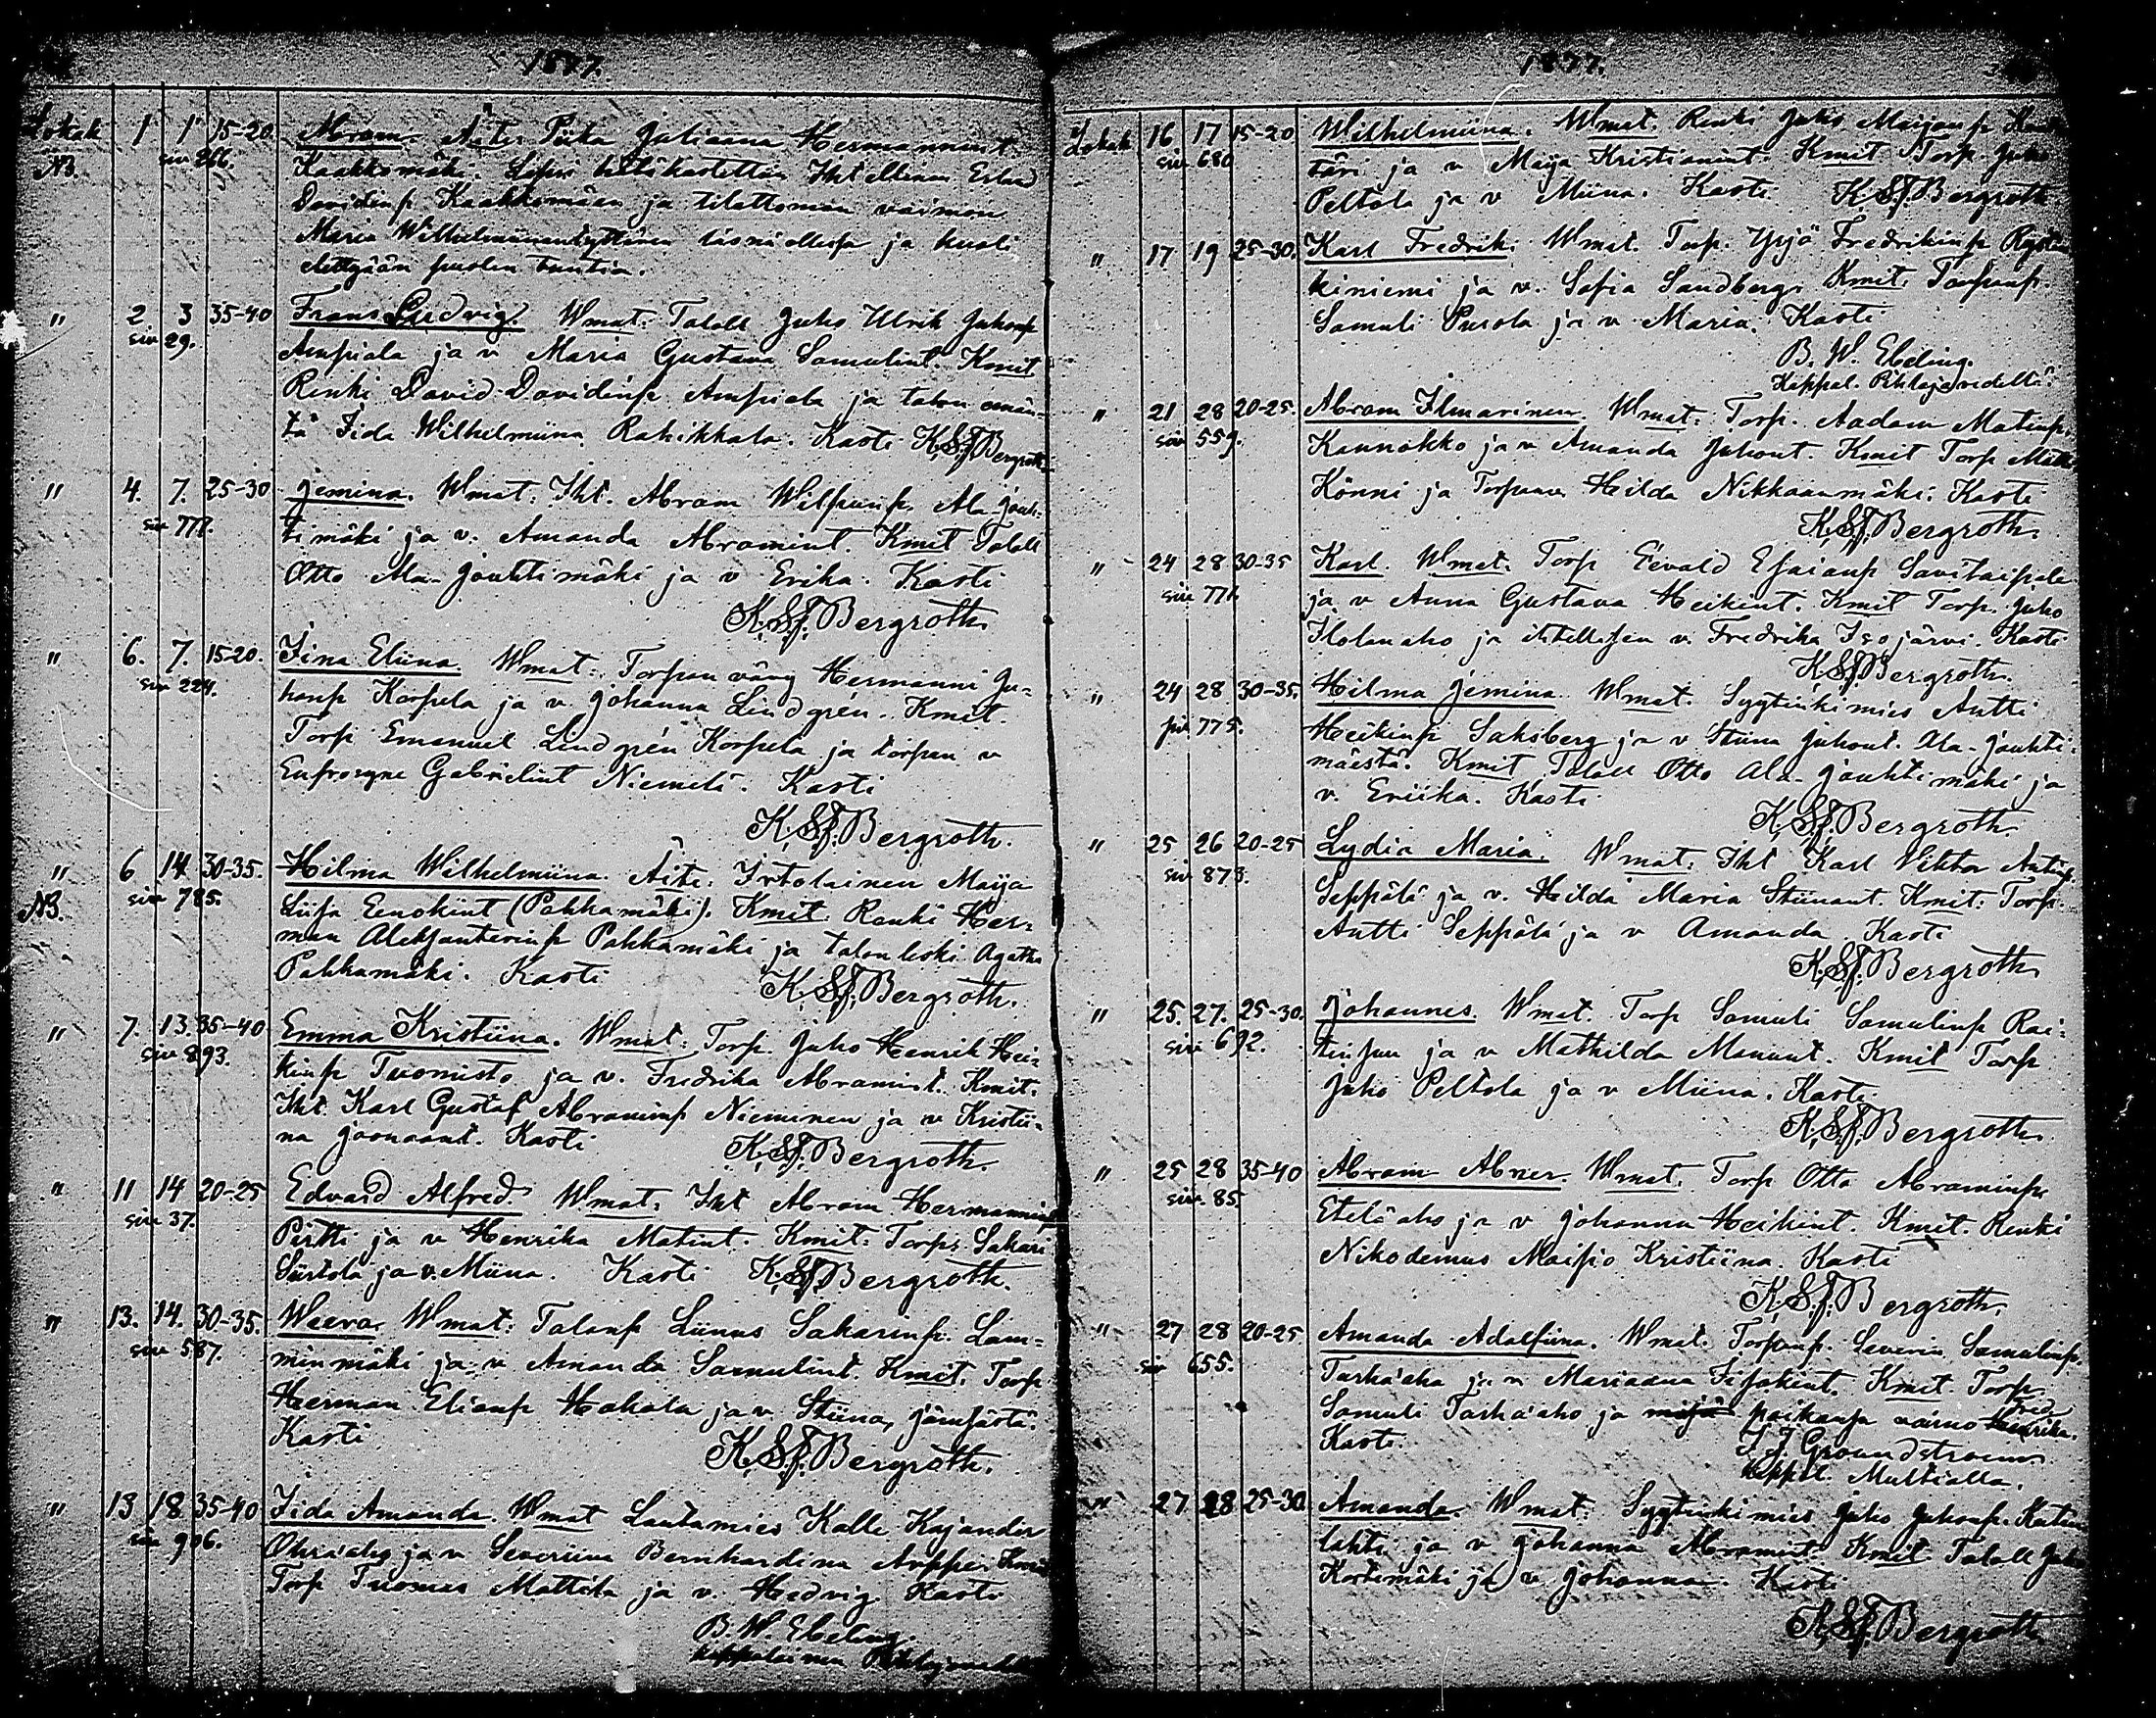 1877.
Lokak 1 1 15-20 Abram. Äite: Piika Juliaana Hermannint.
siv 266.
NB. Kaakkomäki. Lapsi hätäkastettiin Itsellinen
Davidinp Kaakkomäen ja tilattoman vaimon
Maria läsnäollessa ja kuoli
elettyään puolen tuntia.
" 2 3 35-40 Frans Ludvig. Wmat: Talall Juho Ulrik Juhonp
siv 29.
Ampiala ja v Maria Gustava Samulint. Kmit
Renki David Davidinp Ampiala ja talon emän-
tä Iida Wilhelmiina Rahikkala. Kasti K.S.J. Bergroth
" 4. 7. 25-30 Jemina. Wmat: Itsl. Abram Ala Jouh-
siv 777.
timäki ja v. Amanda Abramint. Kmit Talall
Otto Ala-Jouhtimäki ja v Erika. Kasti
K.S.J. Bergroth.
" 6. 7. 15-20. Fina Eliina. Wmat: Torpan vävy Hermanni Ju-
siv 224.
hanp Korpela ja v Johanna Lindgrén. Kmit.
Torp Emanuel Lindgrén Korpela ja torpan v
Eufrosyne Gabrielint Niemelä. Kasti
K.S.J. Bergroth.
" 6 14 30-35. Hilma Wilhelmiina. Äite: Irtolainen Maija
NB. siv 785.
Liisa Eenokint (Pakkamäki). Kmit. Renki Her-
man Aleksanterinp Pakkamäki ja talon leski Agatha
Pakkamäki. Kasti K.S.J. Bergroth.
" 7. 13. 35-40 Emma Kristiina. Wmat: Torp. Juho Henrik Hei-
siv 893.
kinp Tuomisto ja v. Fredrika Abramint. Kmit.
Itsl. Karl Gustaf Abraminp Nieminen ja v Kristii-
na Joonaant. Kasti K.S.J. Bergroth.
" 11 14 20-25 Edvard Alfred. Wmat: Itsl Abram Hermanninp
siv 37.
Pirtti ja v Henrika Matint. Kmit: Torp. Sakari
Siirtola ja v. Miina. Kasti K.S.J. Bergroth.
" 13. 14. 30-35. Weera. Wmat: Talonp Liinus Sakarinp. Lam-
siv 587.
minmäki ja v Amanda Samulint. Kmit. Torp
Herman Elianp Hakala ja v. Stiina, Jämsästä.
Kasti K.S.J. Bergroth.
" 13 18 35-40 Iida Amanda. Wmat Lautamies Kalle Kajander
siv 906.
Ohraaho ja v Severiina Bernhardina Kmit
Torp Tuomas Mattila ja v. Hedvig Kasti
B. W. Ebeling.
kappalainen
1877.
Lokak 16 17 15-20 Wilhelmiina. Wmat. Renki Juho
siv 680
täri ja v Maija Kristianint. Kmit Torp. Juho
Peltola ja v Miina. Kasti K.S.J. Bergroth
" 17 19 25-30. Karl Fredrik. Wmat. Torp. Yrjö Fredrikinp
kiniemi ja v. Sofia Sandberg. Kmit.
Samuli Purola ja v Maria. Kasti
B. W. Ebeling.
Kappal. Pihlajavedeltä.
" 21 28 20-25. Abram Ilmarinen. Wmat: Torp. Aadam Matinp.
siv 559.
Kannokko ja v Amanda Juhont. Kmit Torp Matti
Könni ja Hilda Nikkaanmäki. Kasti
K.S.J. Bergroth.
" 24 28 30-35 Karl. Wmat. Torp Eevald Esaianp Savitaipale
siv
ja v Anna Gustava Heikint. Kmit Torp. Juho
Ilolanaho ja itsellisen v. Fredrika Isojärvi. Kasti
K.S.J. Bergroth.
" 24 28 30-35. Hilma Jemina. Wmat. Syytinkimies Antti
siv 775.
Heikinp Saksberg ja v Stiina Juhont. Ala-Jouhti-
mäestä. Kmit. Talall Otto Ala-Jouhtimäki ja
v. Eriika. Kasti
K.S.J. Bergroth
" 25 26 20-25 Lydia Maria. Wmat: Itsl Karl Viktor Antinp.
siv 873.
Seppälä ja v. Hilda Maria Stiinant. Kmit: Torp.
Antti Seppälä ja v Amanda Kasti
K.S.J. Bergroth
" 25. 27. 25-30. Johannes. Wmat. Torp Samuli Samulinp Rai-
siv 692.
ja v Mathilda Manunt. Kmit Torp
Juho Peltola ja v Miina. Kasti.
K.S.J. Bergroth
" 25 28 35-40 Abram Abner. Wmat. Torp Otto Abraminp
siv. 85.
Eteläaho ja v Johanna Heikint. Kmit. Renki
Nikodemus Kristiina. Kasti
K.S.J. Bergroth.
" 27 28 20-25. Amanda Adalfiina. Wmat. Torpanp. Severin Samulinp.
siv 655.
Tarhaaho ja v Mariaana Kmit. Torp.
Samuli Tarhaaho ja paikansa vaimo Fredrika.
Kasti. J. J. Groundstroem
Kappal. Multialla.
" 27 28 25-30. Amanda. Wmat: Syytinkimies Juho Juhonp.
lahti ja v Johanna Abramint. Kmit Talall Juho
Kortemäki ja v Johanna. Kasti
K.S.J. Bergroth